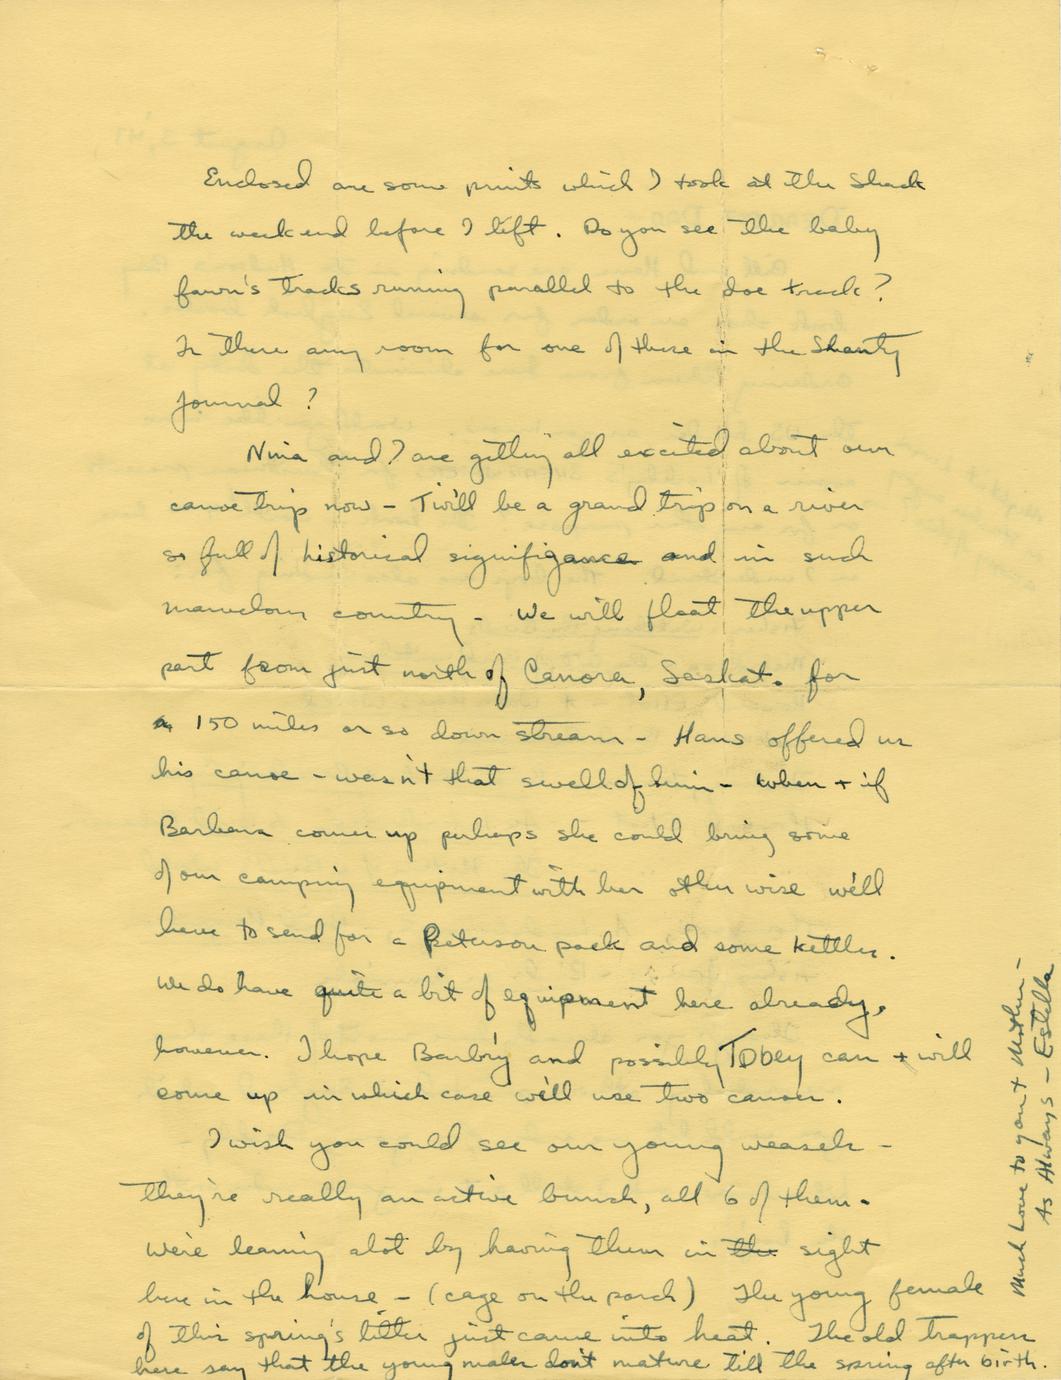 Enclosed are some prints which I took at the Shack
the weekend before I left. Do you see the baby
fawn's tracks running parallel to the doe track?
Is there any room for one of these in the Shanty
Journal?
Nina and I are getting all excited about our
canoe trip now - Twill be a grand trip on a river
so full of historical signifigance and in such
marvelous country - We will float the upper
part from just north of Canora, Saskat. for
150 miles or so down stream - Hans offered us
his canoe - wasn't that swell of him - When + if
Barbara comes up perhaps she could bring some
of our camping equipment with her other wise we'll
have to send for a Peterson pack and some kettles.
We do have quite a bit of equipment here already,
however. I hope Barb'ry and possibly Tobey can + will
come up in which case we'll use two canoes.
I wish you could see our young weasels -
they're really an active bunch, all 6 of them.
We're learning alot by having them in the sight
here in the house - (cage on the porch) The young female
of this spring's litter just came into heat. The old trappers
here say that the young males don't mature till the spring after birth.
Much Love to you + Mother -
As Always - Estella